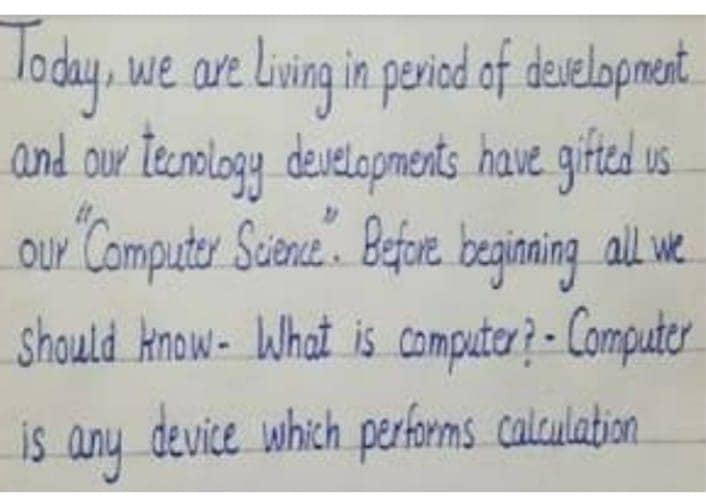 Today, we are Living in period of development
and our tecnology developments have gifted us
our "Computer Science". Before beginning all we
should know- What is computer?- Computer
is any device which performs calculation